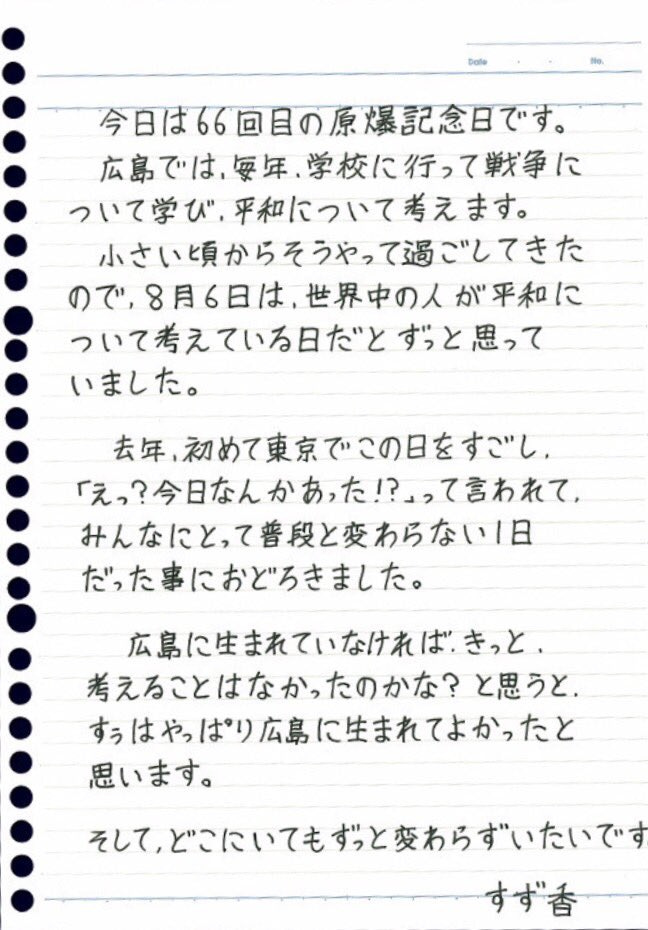 Date ・ ・ No.
今日は66回目の原爆記念日です。
広島では、毎年、学校に行って戦争に
ついて学び、平和について考えます。
小さい頃からそうやって過ごしてきた
ので、8月6日は、世界中の人が平和に
ついて考えている日だとずっと思って
いました。
去年、初めて東京でこの日をすごし、
「えっ?今日なんかあった!?」って言われて、
みんなにとって普段と変わらない1日
だった事におどろきました。
広島に生まれていなければ、きっと、
考えることはなかったのかな?と思うと、
すぅはやっぱり広島に生まれてよかったと
思います。
そして、どこにいてもずっと変わらずいたいです
すず香